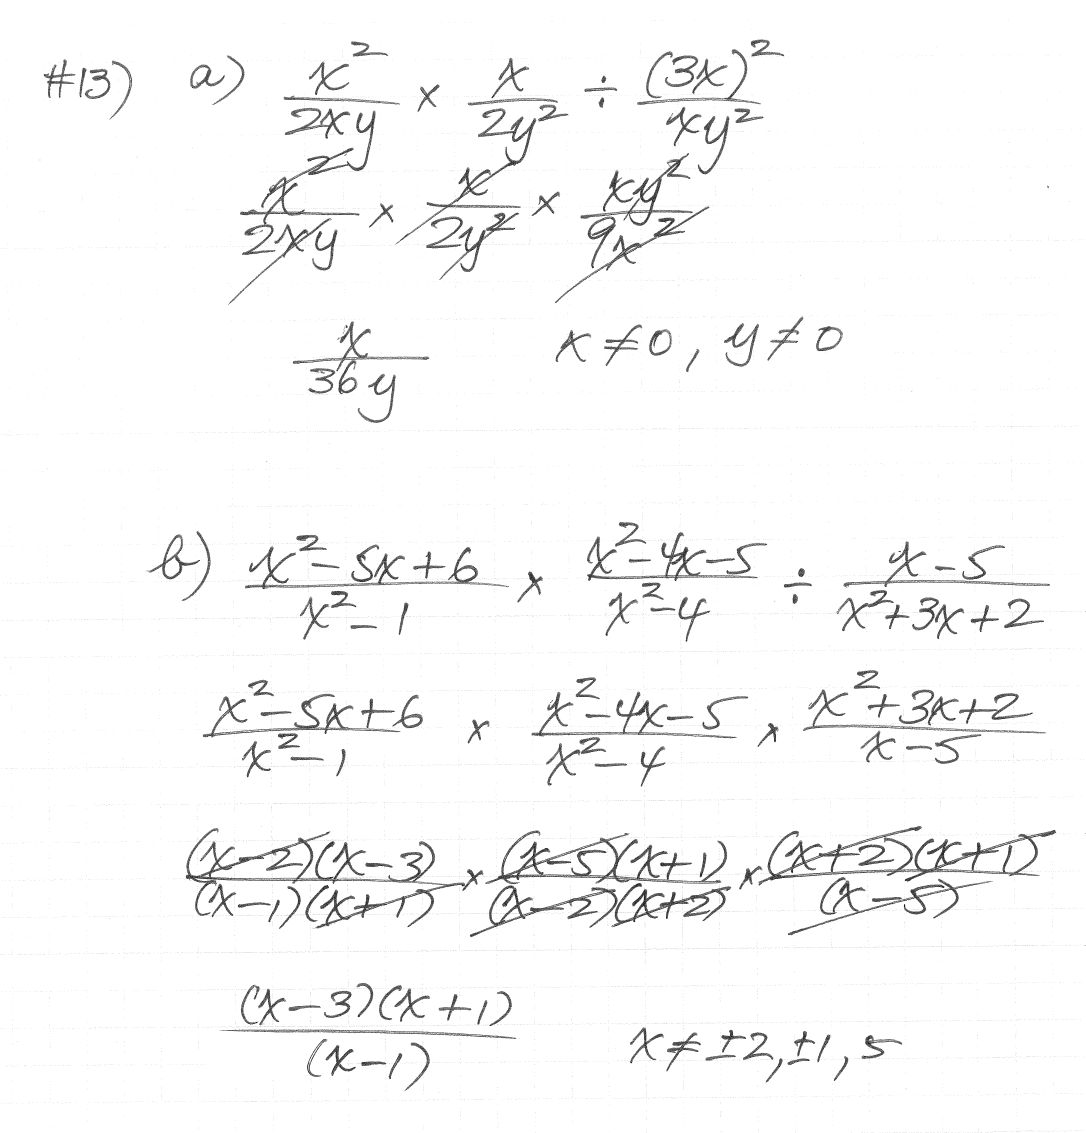 #13) a) x²/2xy × x/2y² ÷ (3x)²/xy²
x²/2xy × x/2y² × xy²/9x²
x/36y x ≠ 0, y ≠ 0
b) x²-5x+6/x²-1 × x²-4x-5/x²-4 ÷ x-5/x²+3x+2
x²-5x+6/x²-1 × x²-4x-5/x²-4 × x²+3x+2/x-5
(x-2)(x-3)/(x-1)(x+1) × (x-5)(x+1)/(x-2)(x+2) × (x+2)(x+1)/(x-5)
(x-3)(x+1)/(x-1) x ≠ ±2, ±1, 5